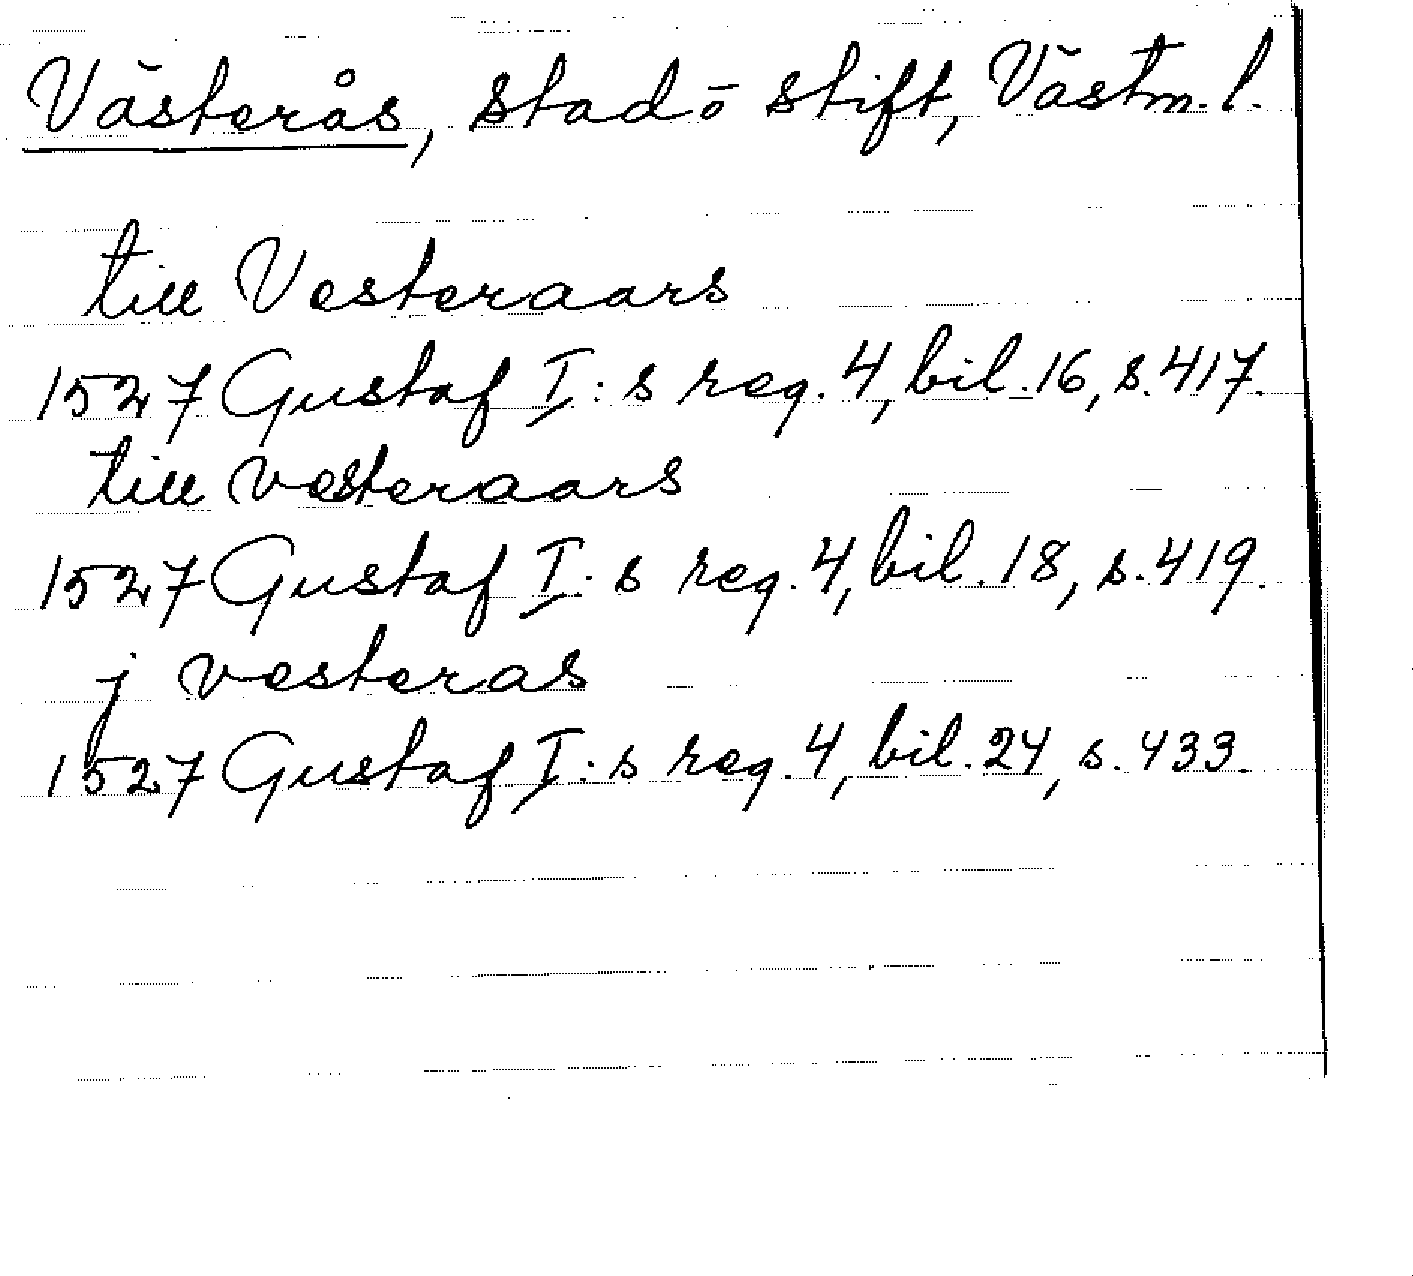 Västerås, stad ö stift, Västm. l.
till Vesteraars
1527 Gustaf I:s reg. 4, bil. 16, s. 417.
till vesteraars
1527 Gustaf I:s reg. 4, bil. 18, s. 419.
j vesteras
1527 Gustaf I:s reg. 4, bil. 24, s. 433.